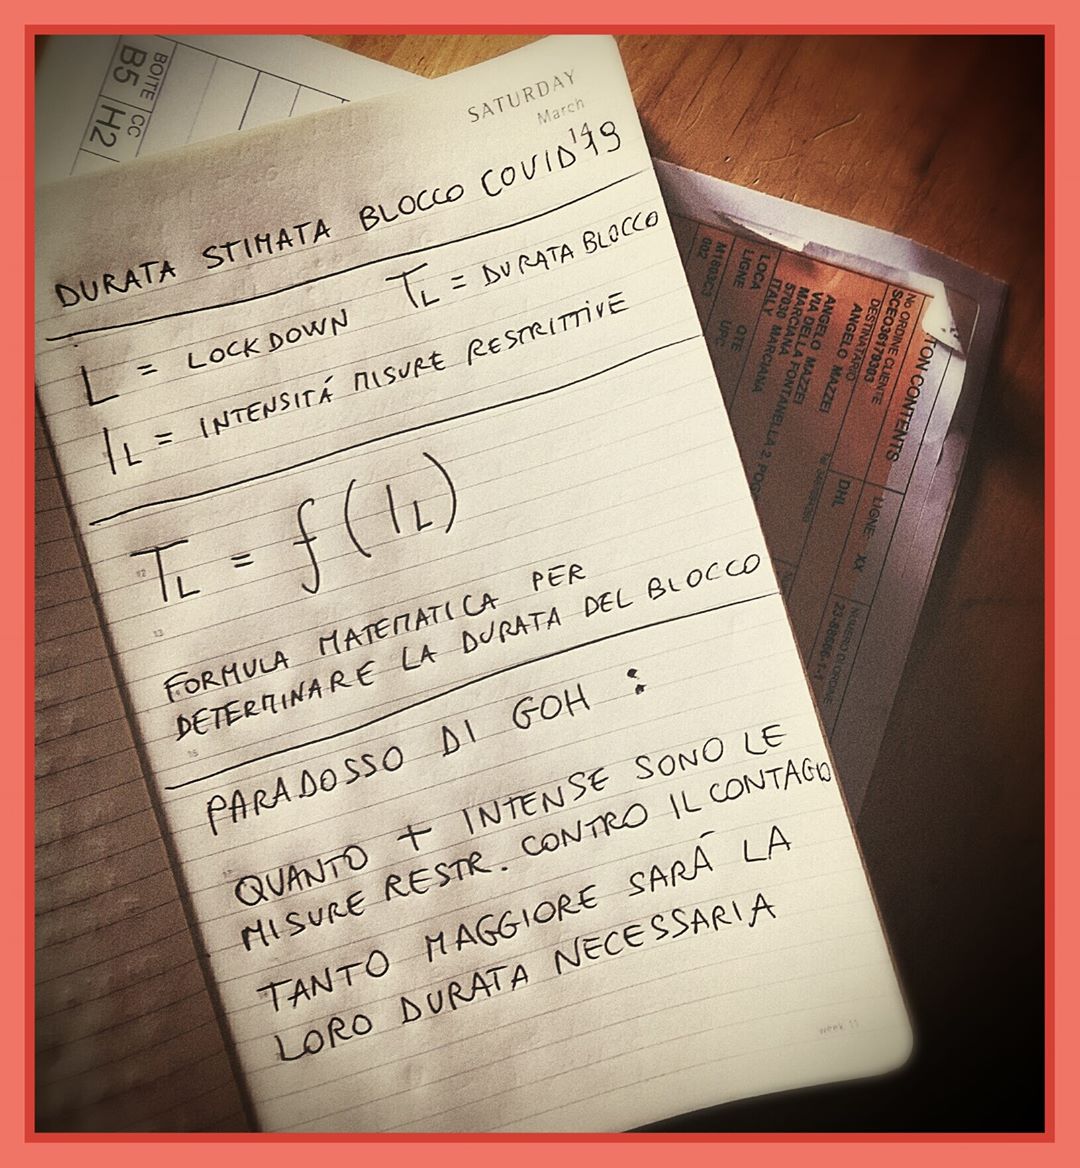 BOITE CC
B5 H2
SATURDAY
March
14
DURATA STIMATA BLOCCO COVID 19
L = LOCKDOWN TL = DURATA BLOCCO
IL = INTENSITÁ MISURE RESTRITTIVE
TL = f(IL)
12
13
FORMULA MATEMATICA PER
DETERMINARE LA DURATA DEL BLOCCO
PARADOSSO DI GOH :
QUANTO + INTENSE SONO LE
MISURE RESTR. CONTRO IL CONTAGIO
TANTO MAGGIORE SARÁ LA
LORO DURATA NECESSARIA
week 11
TON CONTENTS
No ORDINE CLIENTE
SCEO36179303
DESTINATARIO
ANGELO MAZZEI
ANGELO MAZZEI
VIA DELLA FONTANELLA 2
57030 MARCIANA
ITALY MARCIANA
LOCA
LIGNE QTE UPC
M1803C3
002
DHL
LIGNE XX